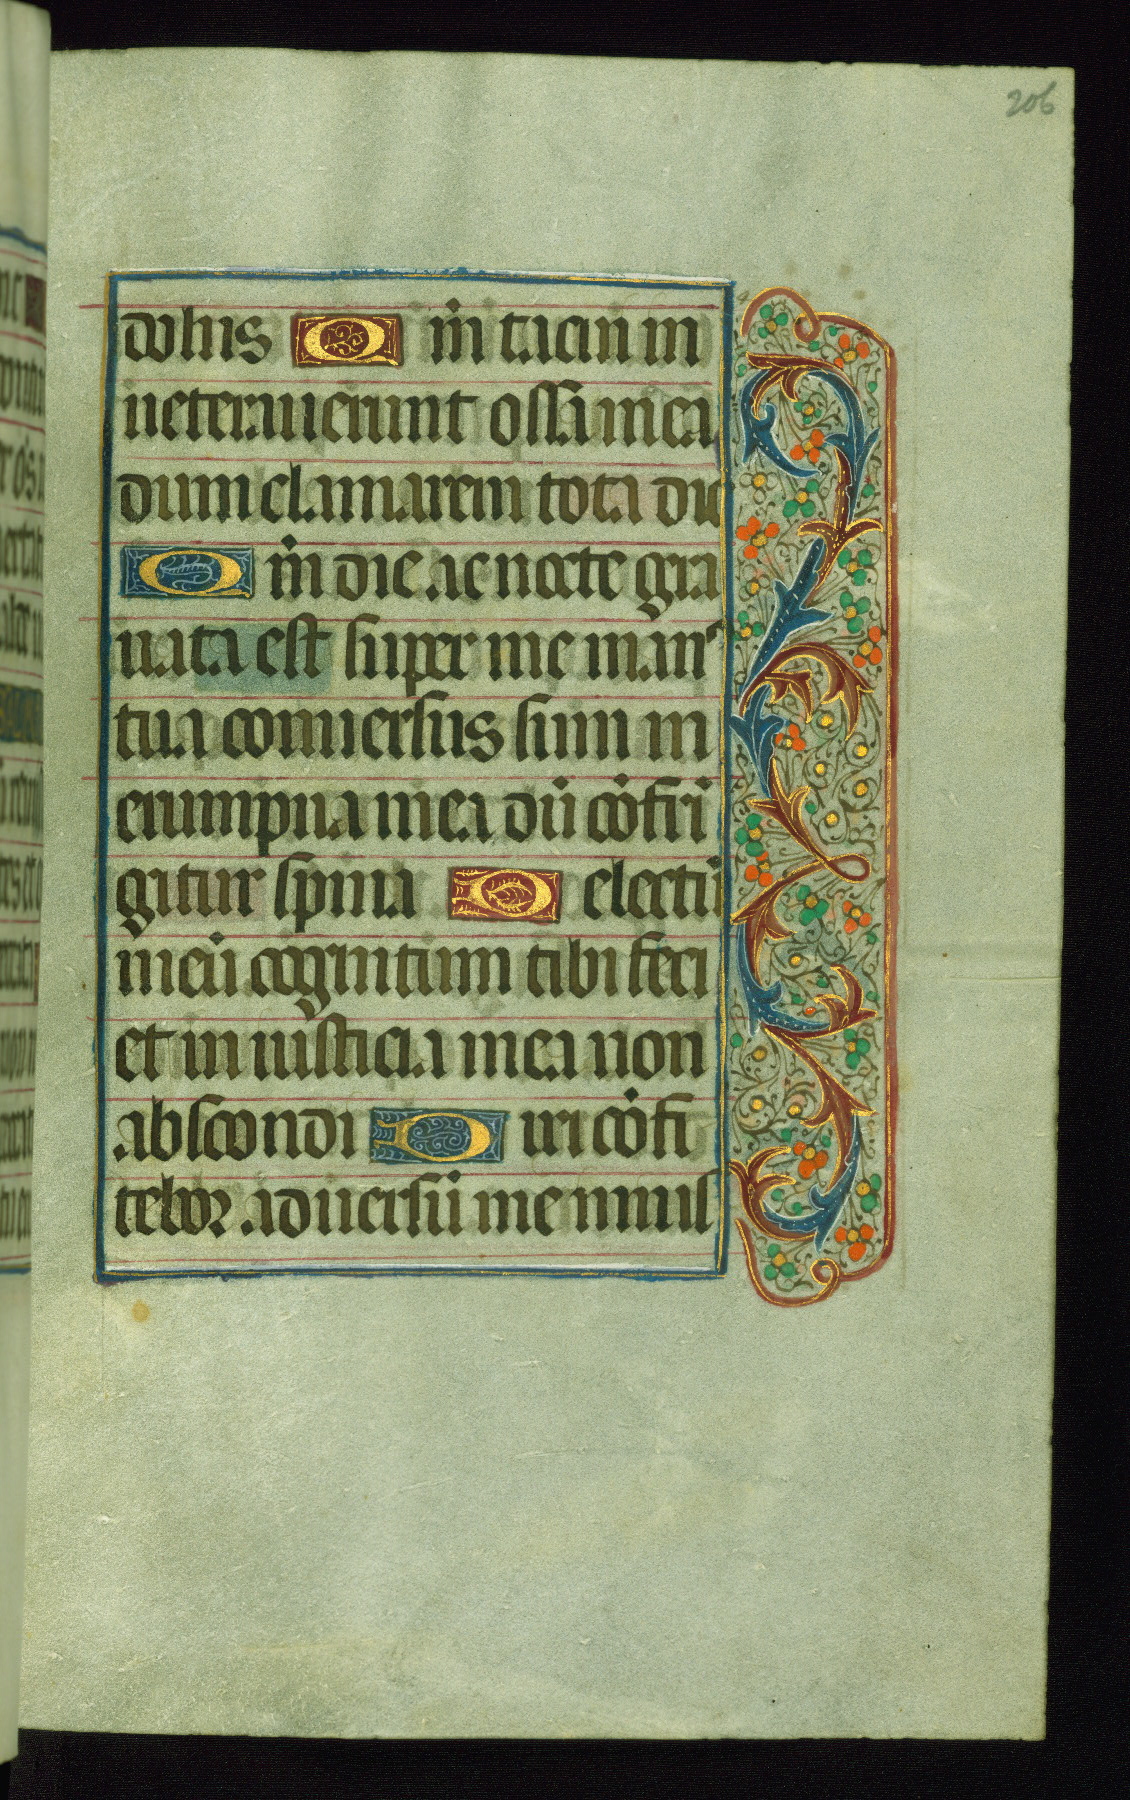 206
dolus Qm̄ tacui in
ueterauerunt ossa mea
dum clamarem tota die
Qm̄ die ac nocte gra
uata est super me man᷒
tua conuersus sum in
erumpna mea dū cōfri
gitur spina Delectū
meū cognitum tibi feci
et iniusticia mea non
abscondi Dixi cōfi
tebor aduersū me iniusi